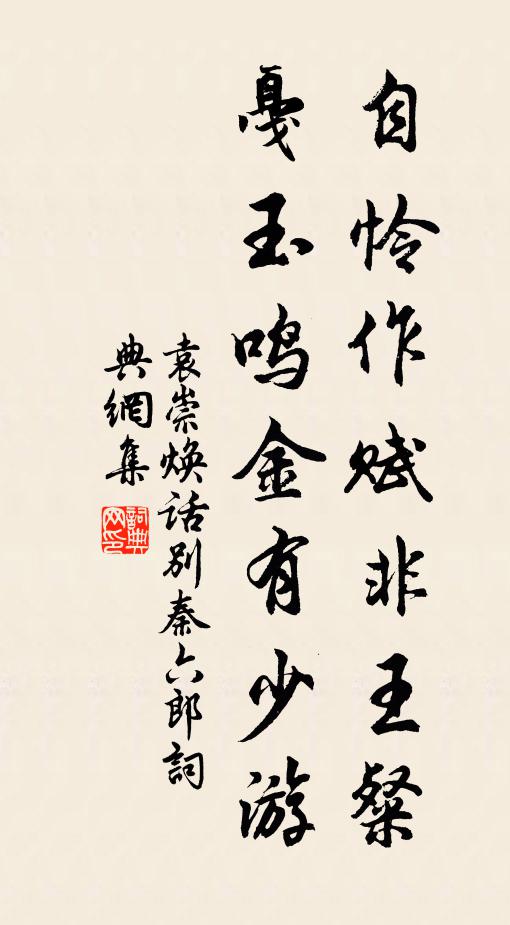 自怜作赋非王粲
戛玉鸣金有少游
袁崇焕话别秦六郎词
典網集
詞典
网印